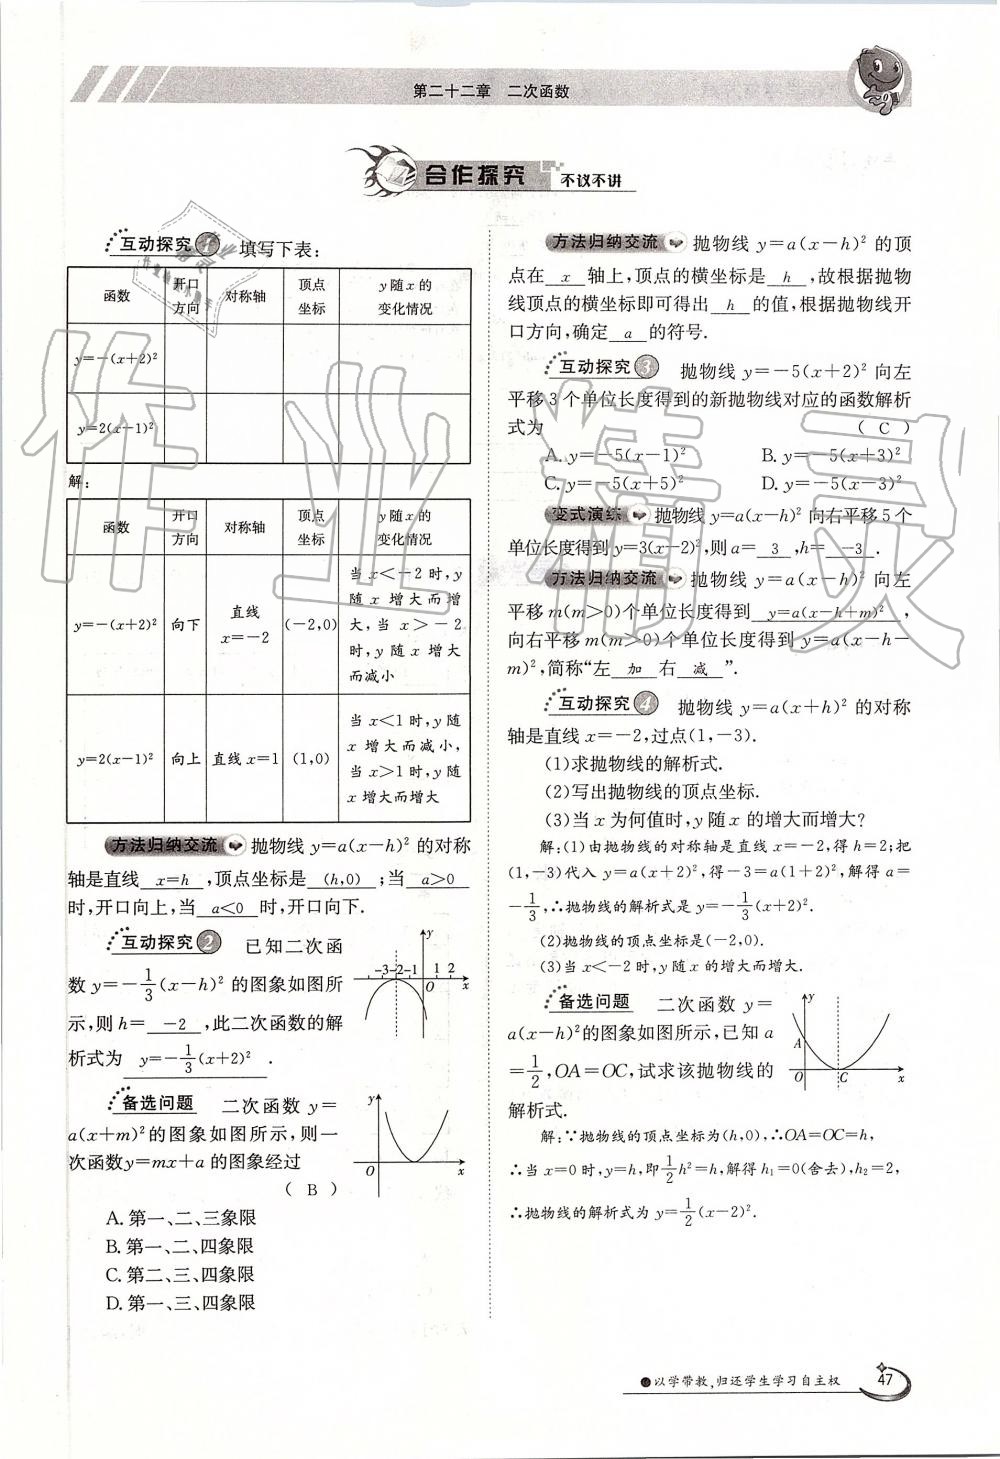 第二十二章　二次函数
合作探究 不议不讲
互动探究1　填写下表：
函数　开口方向　对称轴　顶点坐标　y随x的变化情况
y=-(x+2)²
y=2(x-1)²
解：
函数　开口方向　对称轴　顶点坐标　y随x的变化情况
y=-(x+2)²　向下　直线x=-2　(-2,0)　当x<-2时,y随x增大而增大,当x>-2时,y随x增大而减小
y=2(x-1)²　向上　直线x=1　(1,0)　当x<1时,y随x增大而减小,当x>1时,y随x增大而增大
方法归纳交流　抛物线y=a(x-h)²的对称
轴是直线 x=h ,顶点坐标是 (h,0) ;当 a>0
时,开口向上,当 a<0 时,开口向下.
互动探究2　已知二次函
数y=-1/3(x-h)²的图象如图所
示,则h= -2 ,此二次函数的解
析式为 y=-1/3(x+2)² .
y
-3-2-1　1 2
O　x
备选问题　二次函数y=
a(x+m)²的图象如图所示,则一
次函数y=mx+a的图象经过
( B )
y
O　x
A.第一、二、三象限
B.第一、二、四象限
C.第二、三、四象限
D.第一、三、四象限
方法归纳交流　抛物线y=a(x-h)²的顶
点在 x 轴上,顶点的横坐标是 h ,故根据抛物
线顶点的横坐标即可得出 h 的值,根据抛物线开
口方向,确定 a 的符号.
互动探究3　抛物线y=-5(x+2)²向左
平移3个单位长度得到的新抛物线对应的函数解析
式为　( C )
A.y=-5(x-1)²　B.y=-5(x+3)²
C.y=-5(x+5)²　D.y=-5(x-3)²
变式演练　抛物线y=a(x-h)²向右平移5个
单位长度得到y=3(x-2)²,则a= 3 ,h= -3 .
方法归纳交流　抛物线y=a(x-h)²向左
平移m(m>0)个单位长度得到 y=a(x-h+m)² ,
向右平移m(m>0)个单位长度得到y=a(x-h-
m)²,简称“左 加 右 减 ”.
互动探究4　抛物线y=a(x+h)²的对称
轴是直线x=-2,过点(1,-3).
(1)求抛物线的解析式.
(2)写出抛物线的顶点坐标.
(3)当x为何值时,y随x的增大而增大?
解:(1)由抛物线的对称轴是直线x=-2,得h=2;把
(1,-3)代入y=a(x+2)²,得-3=a(1+2)²,解得a=
-1/3,∴抛物线的解析式是y=-1/3(x+2)².
(2)抛物线的顶点坐标是(-2,0).
(3)当x<-2时,y随x的增大而增大.
备选问题　二次函数y=
a(x-h)²的图象如图所示,已知a
=1/2,OA=OC,试求该抛物线的
解析式.
y
A
O　C　x
解:∵抛物线的顶点坐标为(h,0),∴OA=OC=h,
∴当x=0时,y=h,即1/2h²=h,解得h₁=0(舍去),h₂=2,
∴抛物线的解析式为y=1/2(x-2)².
●以学带教,归还学生学习自主权
47
作业精灵